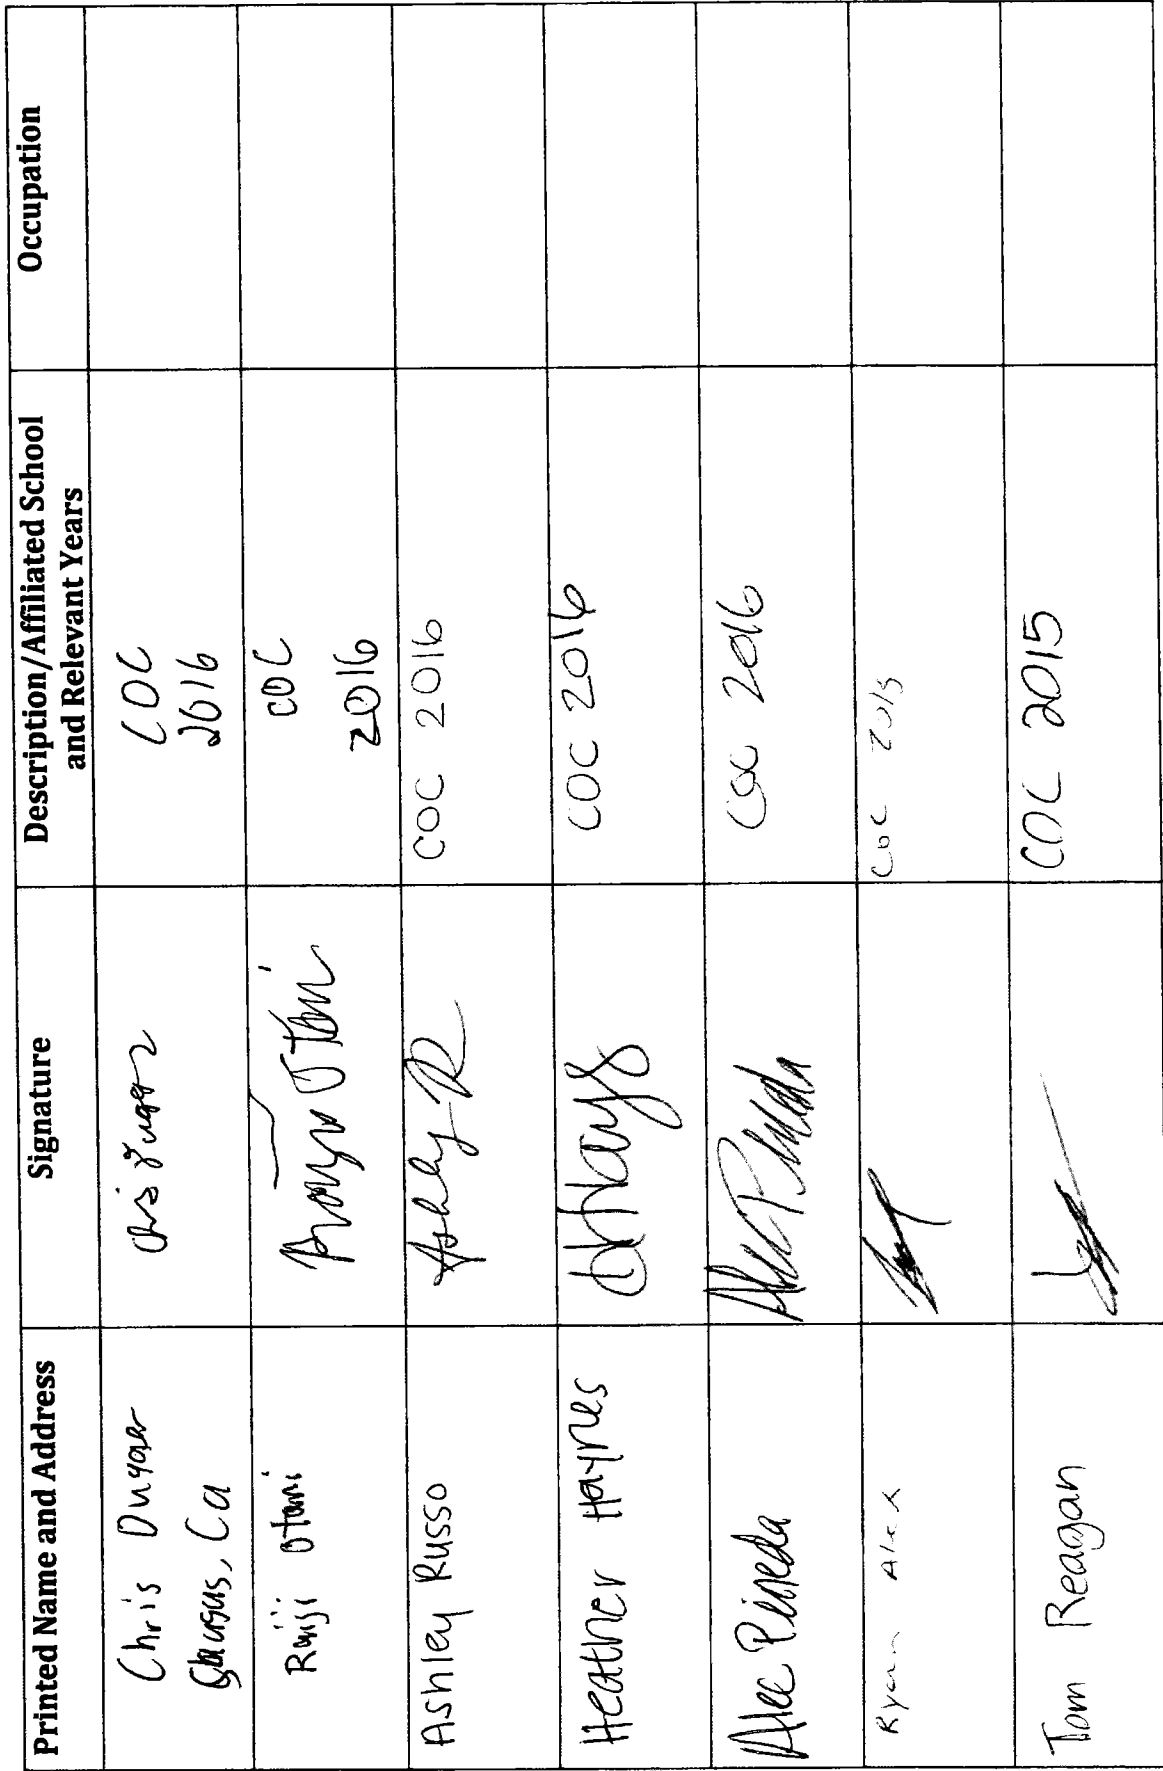 Printed Name and Address
Signature
Description/Affiliated School
and Relevant Years
Occupation
Chris Dugger
Saugus, Ca
COC
2016
Reiji Otani
COC
2016
Ashley Russo
Ashley R
COC 2016
Heather Haynes
COC 2016
Alec Pineda
Alec Pineda
COC 2016
Ryan Alex
COC
Tom Reagan
COC 2015